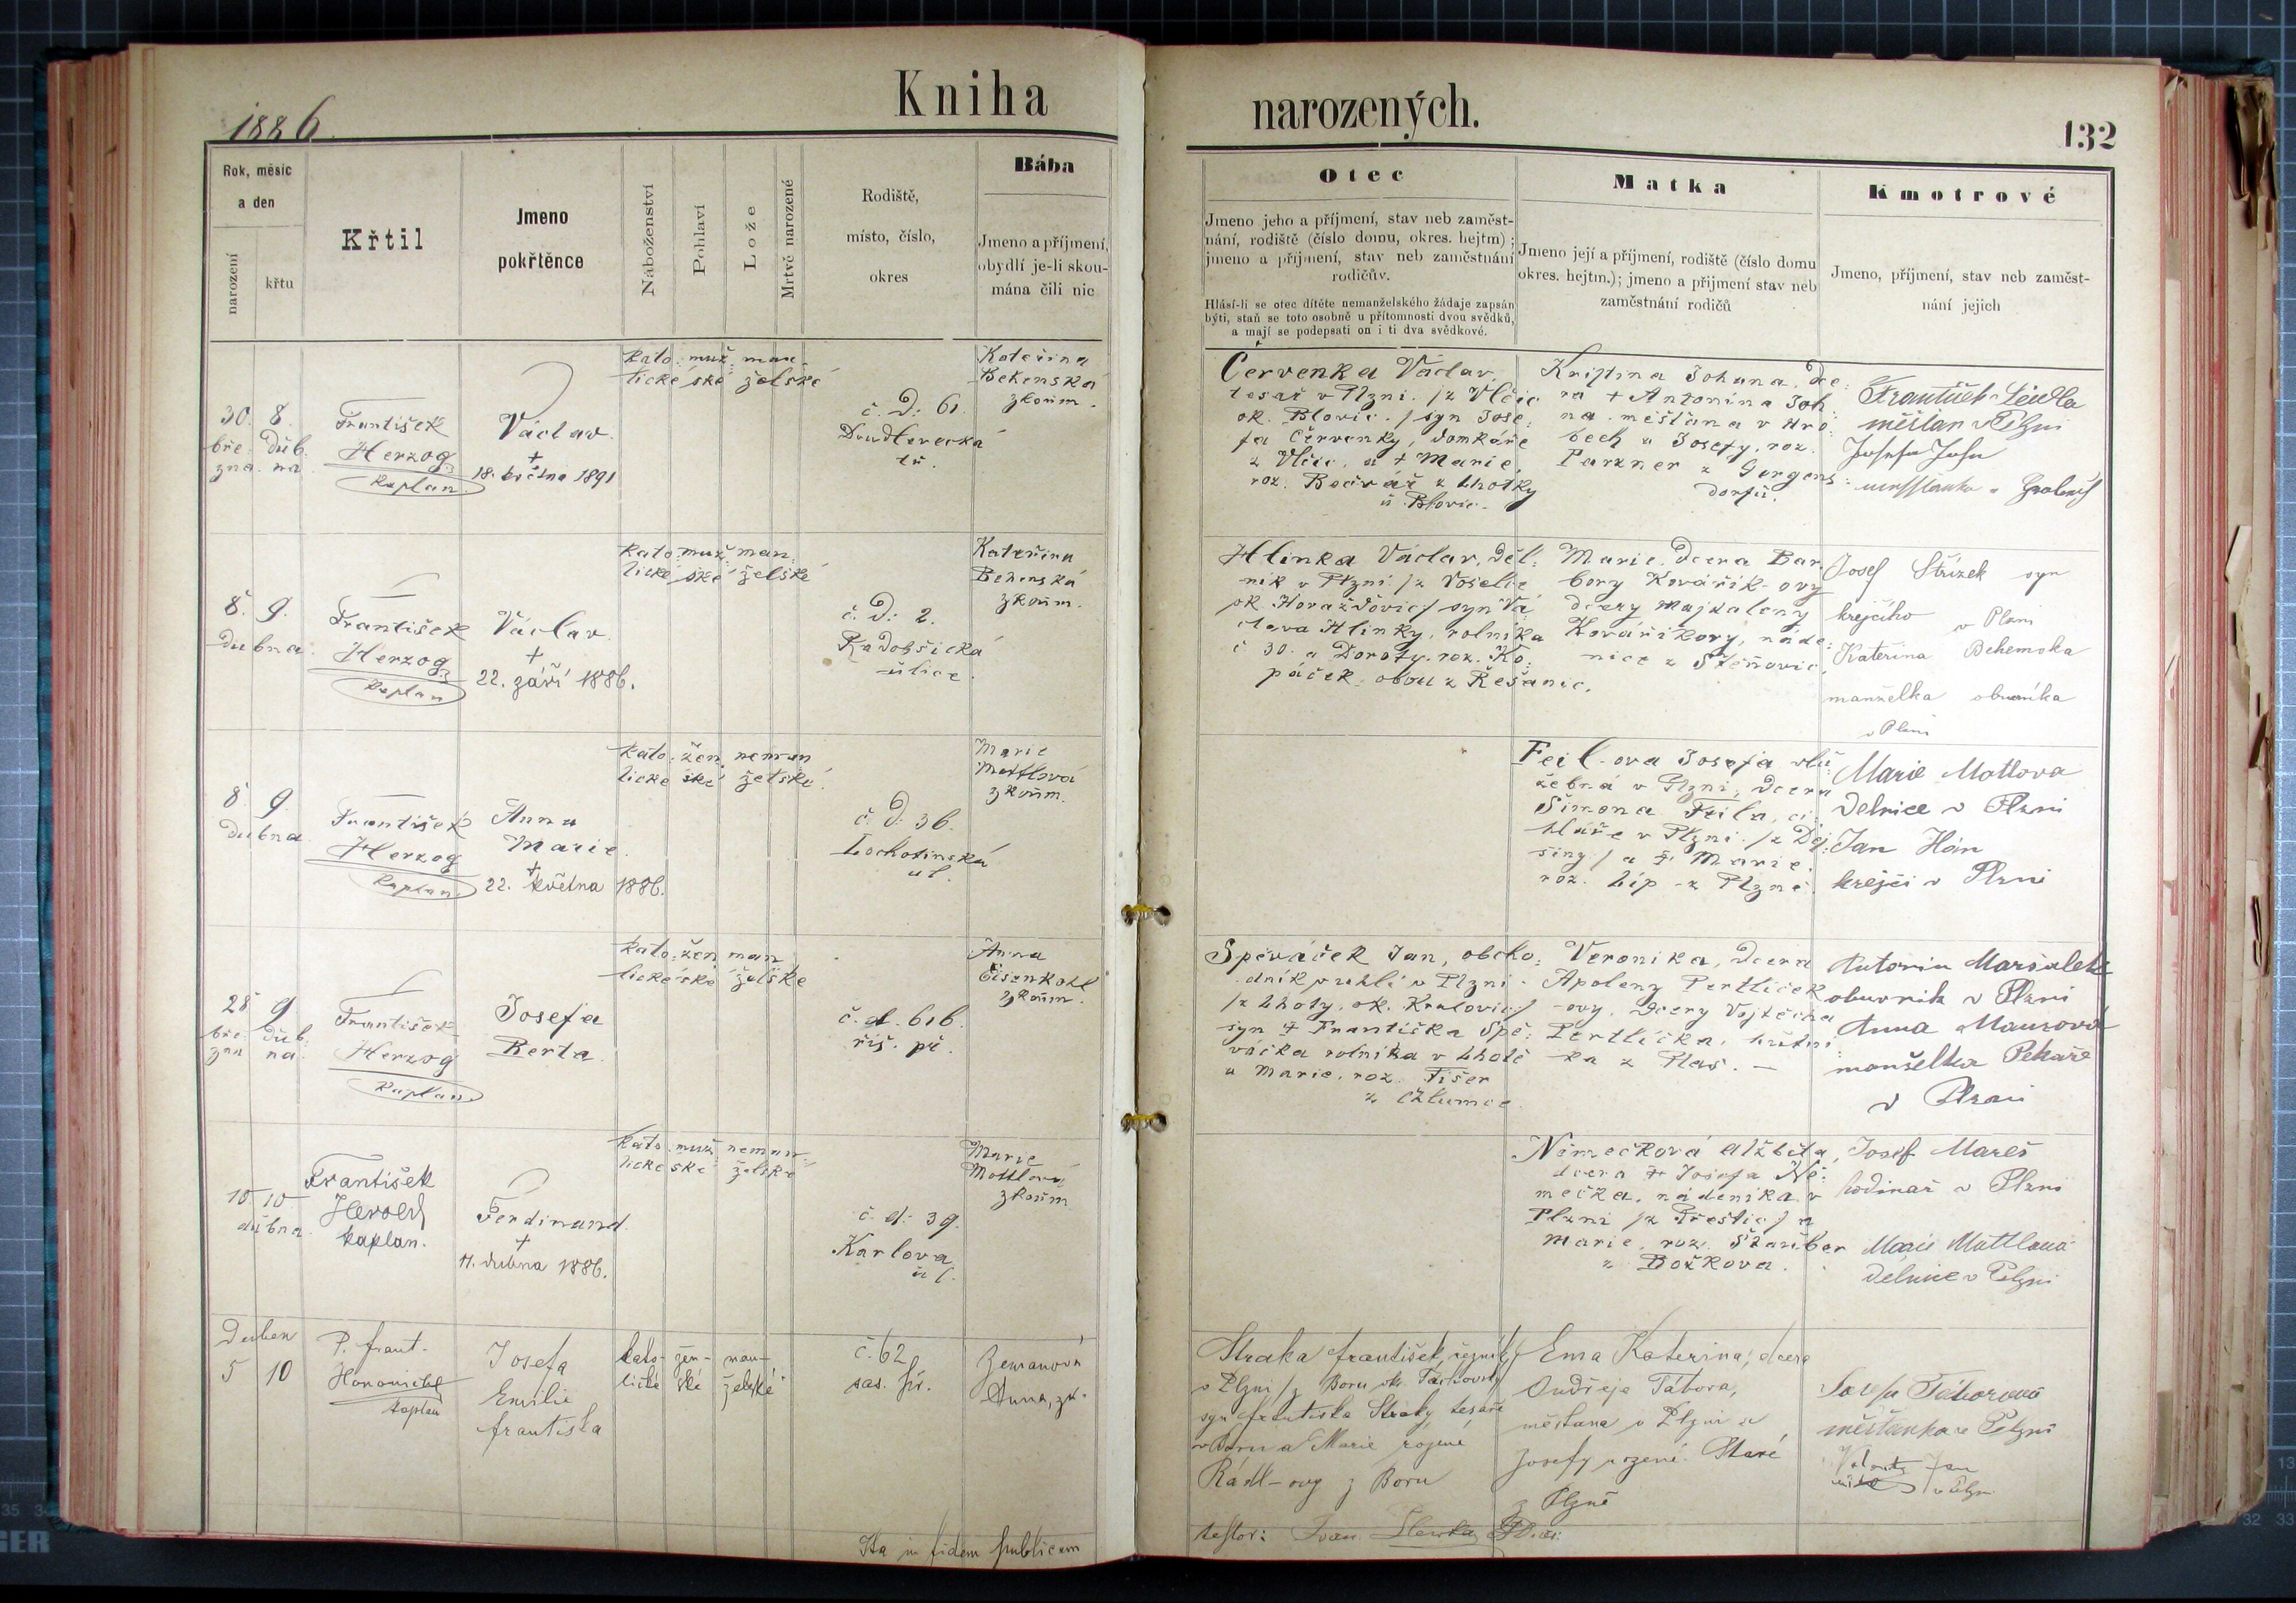 Kniha
narozených.
1886.
132
Rok, měsíc
a den
narození
křtu
Křtil
Jmeno
pokřtěnce
Náboženství
Pohlaví
Lože
Mrtvě narozené
Rodiště,
místo, číslo,
okres
Bába
Jmeno a příjmení,
obydlí je-li skou-
mána čili nic
Otec
Jmeno jeho a příjmení, stav neb zaměst-
nání, rodiště (číslo domu, okres. hejtm) ;
jmeno a příjmení, stav neb zaměstnání
rodičův.
Hlásí-li se otec dítěte nemanželského žádaje zapsán
býti, staň se toto osobně u přítomnosti dvou svědků,
a mají se podepsati on i ti dva svědkové.
Matka
Jmeno její a příjmení, rodiště (číslo domu
okres. hejtm.); jmeno a příjmení stav neb
zaměstnání rodičů
Kmotrové
Jmeno, příjmení, stav neb zaměst-
nání jejich
30. 8.
bře- dub-
zna. na.
František
Herzog
kaplan.
Václav.
+
18. května 1891
kato- muž- man-
lické ské želské
č. D: 61.
Doudlevecká
tř.
Kateřina
Bekenská
zkoum.
Červenka Václav,
tesař v Plzni. /z Vlčic
ok. Blovic./ syn Jose-
fa Červenky, domkáře
z Vlčic, a + Marie,
roz. Bočvář z Lhotky
u Blovic.
Kristina Johana, dce-
ra + Antonína Joh-
na. měšťana v Hro-
bech a Josefy, roz.
Parzner z Gergens-
dorfu.
František Leidla
měšťan v Plzni
8. 9.
dubna.
František
Herzog
kaplan
Václav.
+
22. září 1886.
kato- muž- man-
lické ské želské
č. D: 2.
Radobčická
ulice.
Kateřina
Behenská
zkoum.
Hlinka Václav, děl-
ník v Plzni /z Vošelic
ok. Horažďovic/ syn Vá-
clava Hlinky, rolníka
č 30. a Doroty. roz. Ko-
páček, obou z Řešanic.
Marie dcera Bar-
bory Kovářík-ovy
dcery Majdaleny
Kováříkovy, náde-
nice z Štěňovic.
Josef Střízek syn
krejčího v Plzni
Kateřina Behemska
manželka obuvníka
v Plzni
8. 9.
dubna
František
Herzog
kaplan.
Anna
Marie.
+
22. května 1886.
kato- žen. neman
lické ské želské.
č. D: 36.
Lochotínská
ul.
Marie
Mottlová
zkoum.
Feil-ova Josefa slu-
žebná v Plzni, dcera
Šimona Feila, ci-
hláře v Plzni /z Dej-
šiny/ a + Marie,
roz. Líp z Plzně.
Marie Mottlova
Delnice v Plzni
Jan Hán
krejči v Plzni
28 9
bře- dub-
zna na.
František
Herzog
kaplan
Josefa
Berta.
kato- žen man
lické ské želské
č. d. 616.
říš. př.
Anna
Eisenkohl
zkoum.
Spěváček Jan, obcho-
dník v uhlí v Plzni
/z Lhoty, ok. Kralovic/
syn + Františka Spě-
váčka rolníka v Lhotě
a Marie, roz. Fišer
z Chlumce.
Veronika, dcera
Apoleny Pertlíček
-ovy, dcery Vojtěcha
Pertlíčka,
ka z Plas. —
Antonin Maršalek
obuvnik v Plzni
Anna Maurová
manželka Pekaře
v Plzni
10 10
dubna.
František
Herold
kaplan.
Ferdinand.
+
11. dubna 1886.
kato- muž- neman-
lické ské želské
č. d: 39.
Karlova
ul.
Marie
Mottlová
zkoum
Němečková Alžběta,
dcera + Josefa Ně-
mečka, nádeníka v
Plzni /z Přeštic/ a
Marie, roz. Stauber
z Božkova.
Josef Mareš
hodinař v Plzni
Marie Mottlová
Delnice v Plzni
Duben
5 10
P. Frant.
kaplan
Josefa
Emilie
Františka
kato- žen- man-
lické ské želské
č. 62
sas. př.
Zemanová
Anna, zk.
Straka František, řezník
v Plzni /z Boru ok. Tachovský/
syn Františka Straky tesaře
v Boru a Marie rozené
Rádl-ovy z Boru
Ema Kateřina, dcera
Ondřeje Tábora,
měšťana v Plzni a
Josefy rozené Staré
z Plzně
Josefa Táborová
měšťanka v Plzni
Jan
v Plzni
Ita in fidem publicam
testor: